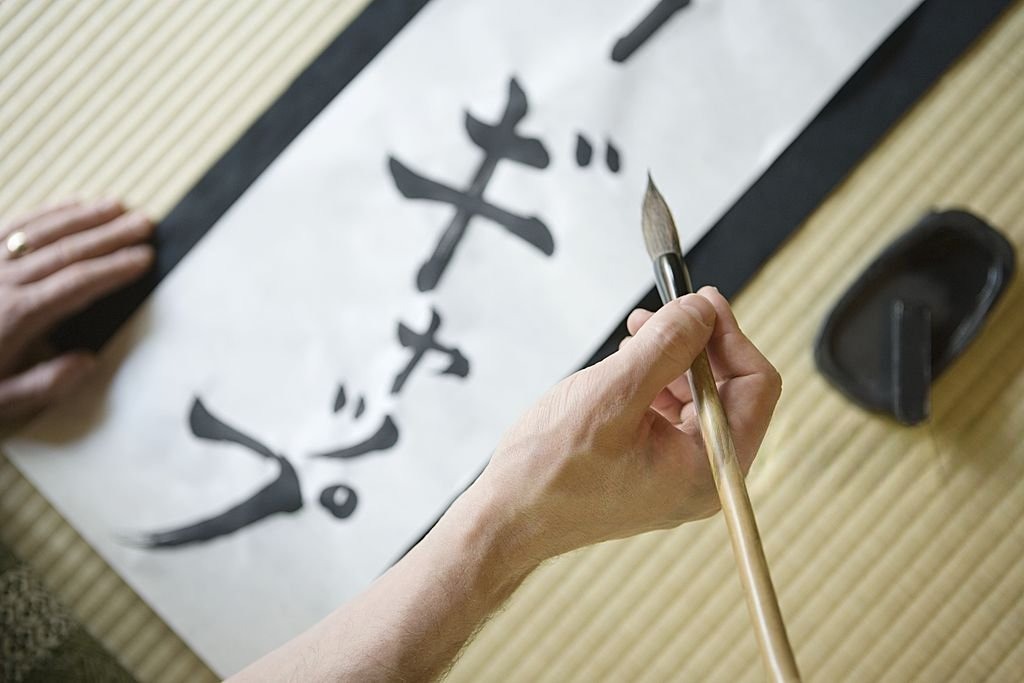 ーギャップ